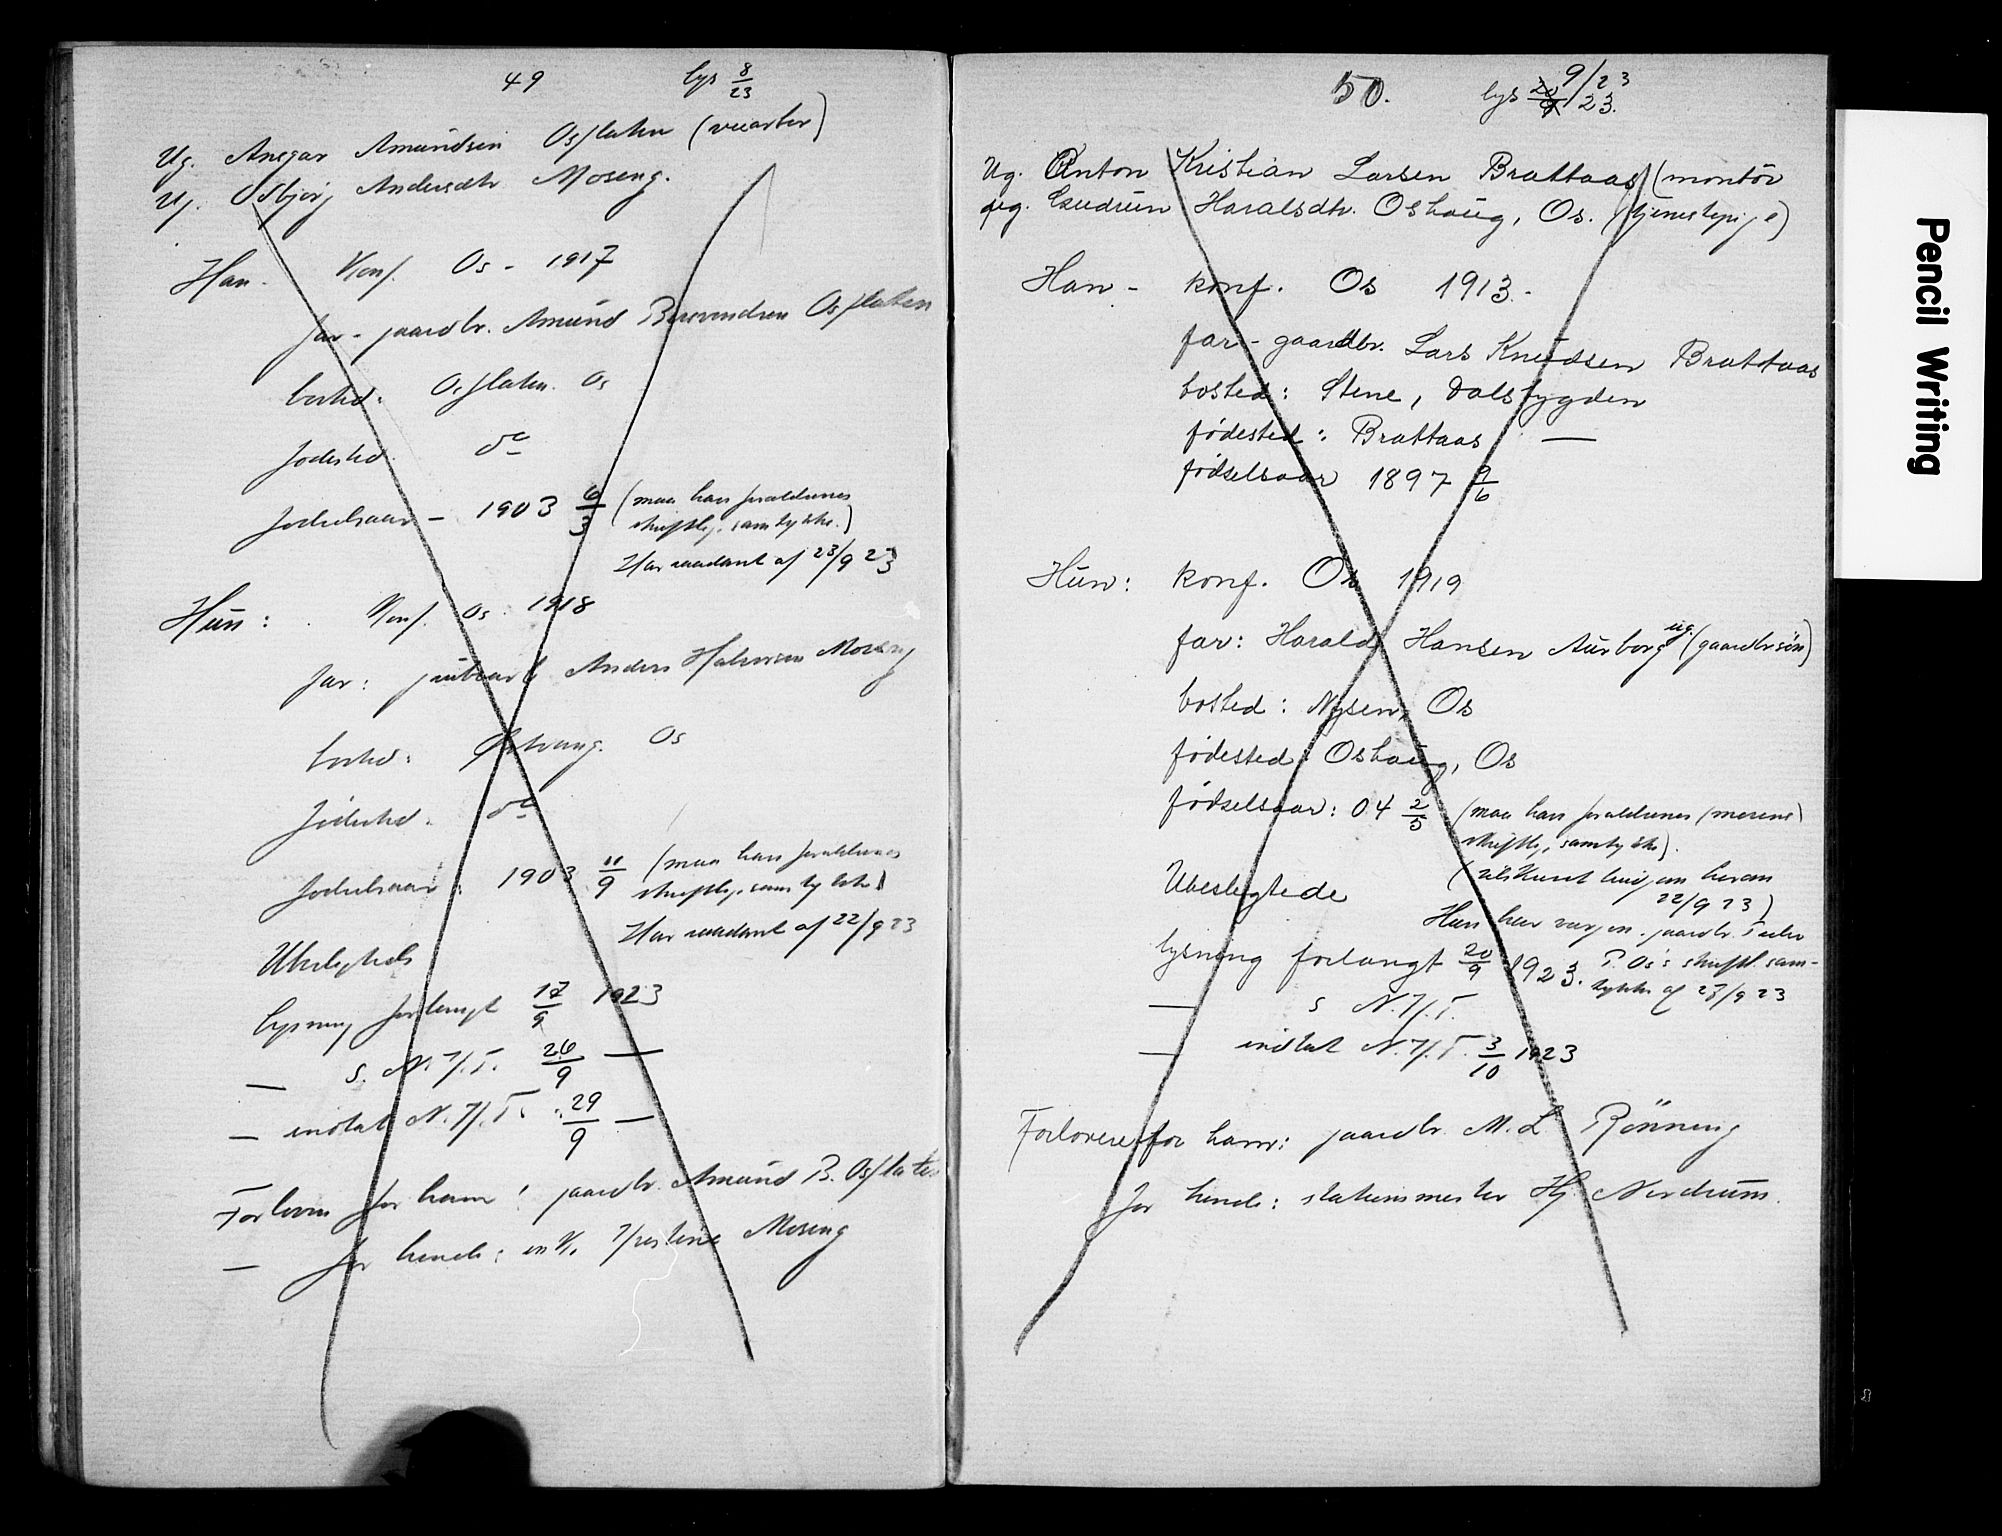 49 lys 8/23
Ug. Ansgar Amundsen Osflaten
Pj. Osbjørg Andersdtr Moseng.
Han. Konf. Os - 1917
far - gaardbr. Amund Osflaten
bosted: Osflaten. Os
fødested. do
fødselsaar - 1903 6/3 (maa have forældrenes
skriftlig. samtykke.)
Har saadant af 23/9 23
Hun: Konf. Os 1918
far: Anders Halvorsen Moseng
bosted: Os
fødested. do
fødselsaar: 1903 11/9 (maa have forældrenes
skriftlig. samtykke)
Har saadant af 22/9 23
Ubeslegtede
lysning forlangt 17/9 1923
— s. N. K. T. 26/9 —
— indtat N. K. T. 29/9 —
Forlover for ham: gaardbr. Amund B. Osflaten
— for hende: enke Moseng
50. lys 20/9 9/23 23.
Ug. Anton Kristian Larsen Brattaas (montör
pig. Gudrun Haralsdtr. Oshaug, Os. (tjenestepige)
Han - konf. Os 1913.-
far - gaardbr. Lars Knudsen Brattaas
bosted: Stene, Dalsbygden
fødested: Brattaas —
fødselsaar 1897 9/6
Hun: konf. Os 1919
far: Harald Hansen Aurborg ug. (gaardbrsön)
bosted: Nysen, Os
fødested: Oshaug, Os
fødselsaar: 04 2/5 (maa have forældrenes (morens)
skriftlig. samtykke).
22/9 23)
Ubeslegtede
Hun har gaardbr.
lysning forlangt 20/9 1923. P. Os's skriftl. sam-
tykke af 23/9 23
— s N. K. T.
— indtat N. K. T. 3/10 1923
Forlovere for ham: gaardbr. M. L. Rönning
for hende: stationsmester Hj. Nordrum.
Pencil Writing